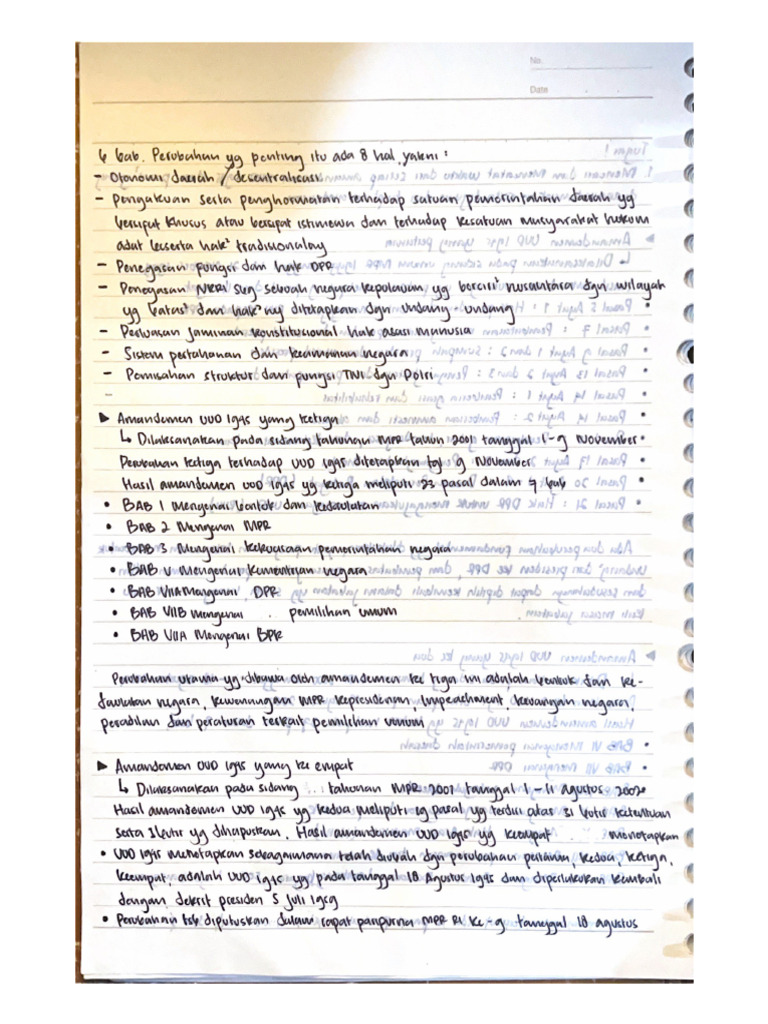 No.
Date
6 bab. Perubahan yg penting itu ada 8 hal, yakni :
- Otonomi daerah / desentralisasi
- Pengakuan serta penghormatan terhadap satuan pemerintahan daerah yg
bersifat khusus atau bersifat istimewa dan terhadap kesatuan masyarakat hukum
adat beserta hak² tradisionalny
- Penegasan fungsi dan hak DPR
- Penegasan NKRI sbg sebuah negara kepulauan yg berciri² nusantara dgn wilayah
yg batas² dan hak²ny ditetapkan dgn undang-undang
- Perluasan jaminan konstitusional hak asasi manusia
- Sistem pertahanan dan keamanan negara
- Pemisahan struktur dan fungsi TNI dgn Polri
-
▶ Amandemen UUD 1945 yang ketiga
↳ Dilaksanakan pada sidang tahunan MPR tahun 2001 tanggal 1-9 November
Perubahan ketiga terhadap UUD 1945 ditetapkan tgl 9 November
Hasil amandemen UUD 1945 yg ketiga meliputi 23 pasal dalam 7 bab
• BAB 1 Mengenai bentuk dan kedaulatan
• BAB 2 Mengenai MPR
• BAB 3 Mengenai kekuasaan pemerintahan negara
• BAB V Mengenai kementrian negara
• BAB VIIA Mengenai DPR
• BAB VIIB mengenai .. pemilihan umum
• BAB VIIA Mengenai BPK
Perubahan utama yg dibawa oleh amandemen ke tiga ini adalah bentuk dan ke-
daulatan negara, kewenangan MPR kepresidenan, impeachment, keuangan negara,
peradilan dan peraturan terkait pemilihan umum
▶ Amandemen UUD 1945 yang ke empat
↳ Dilaksanakan pada sidang .. tahunan MPR 2002 tanggal 1 - 11 agustus 2002
Hasil amandemen UUD 1945 yg kedua, meliputi 19 pasal yg terdiri atas 31 butir ketentuan
serta 1 butir yg dihapuskan. Hasil amandemen UUD 1945 yg keempat .. menetapkan
• UUD 1945 menetapkan sebagaimana telah diubah dgn perubahan pertama, kedua, ketiga,
keempat, adalah UUD 1945 yg pada tanggal 18 Agustus 1945 dan diperlakukan kembali
dengan dekrit presiden 5 juli 1959
• Perubahan tsb diputuskan dalam rapat paripurna MPR RI ke-9 tanggal 18 agustus